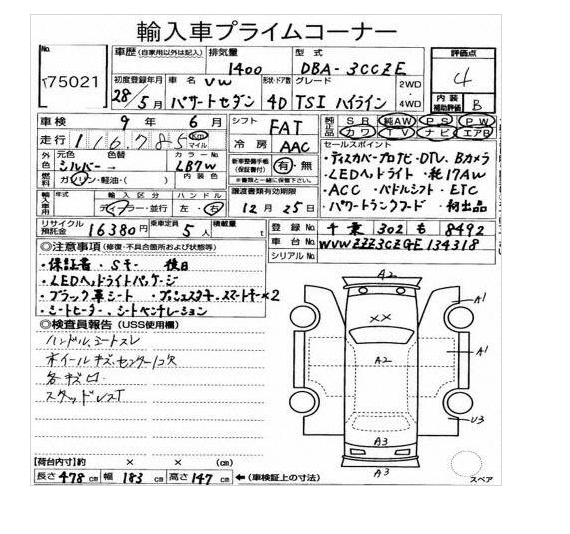 輸入車プライムコーナー
No.
75021
車歴 (自家用以外は記入) 排気量 型式 評価点
1400 DBA-3CCZE 4
初度登録年月 車名 VW 形状・ドア数 グレード 2WD
28年5月 パサートセダン 4D TSI ハイライン 4WD 内装補助評価 B
車検 9年6月 シフト FAT 純正品 SR 純AW PS PW
走行 116,785 Km マイル 冷房 AAC カワ TV ナビ エアB
外色 元色 シルバー 色替 カラーNo LB7W 新車整備手帳(保証書付) 有・無 ※書類と一緒に保管下さい。
セールスポイント
・ディスカバープロナビ・DTV、Bカメラ
燃料 ガソリン・軽油・( ) 内装色
・LEDヘッドライト・純17AW
輸入車用 年式 輸入区分 ハンドル 譲渡書類有効期限
・ACC・パドルシフト・ETC
ディーラー・並行 左・右 12月25日
・パワートランクフード・初出品
リサイクル預託金 16380円 乗車定員 5人 積載量 t
登録No 千葉 302 も 8492
車台No WVWZZZ3CZGE134318
シリアルNo
◎注意事項 (修復・不具合箇所および状態等)
・保証書・Sキー 後日
・LEDヘッドライトパッケージ
・ブラック革シート・プッシュスタート・スマートキー×2
・シートヒーター、シートベンチレーション
◎検査員報告 (USS使用欄)
ハンドル、シートスレ
ホイールキズ、センターバコ欠
各キズ口
スタッドレスT
A2
A1
××
A2
A1
U3
A3
A3
スペア
【荷台内寸】約 × × (cm)
長さ 478 cm 幅 183 cm 高さ 147 cm ←(車検証上の寸法)